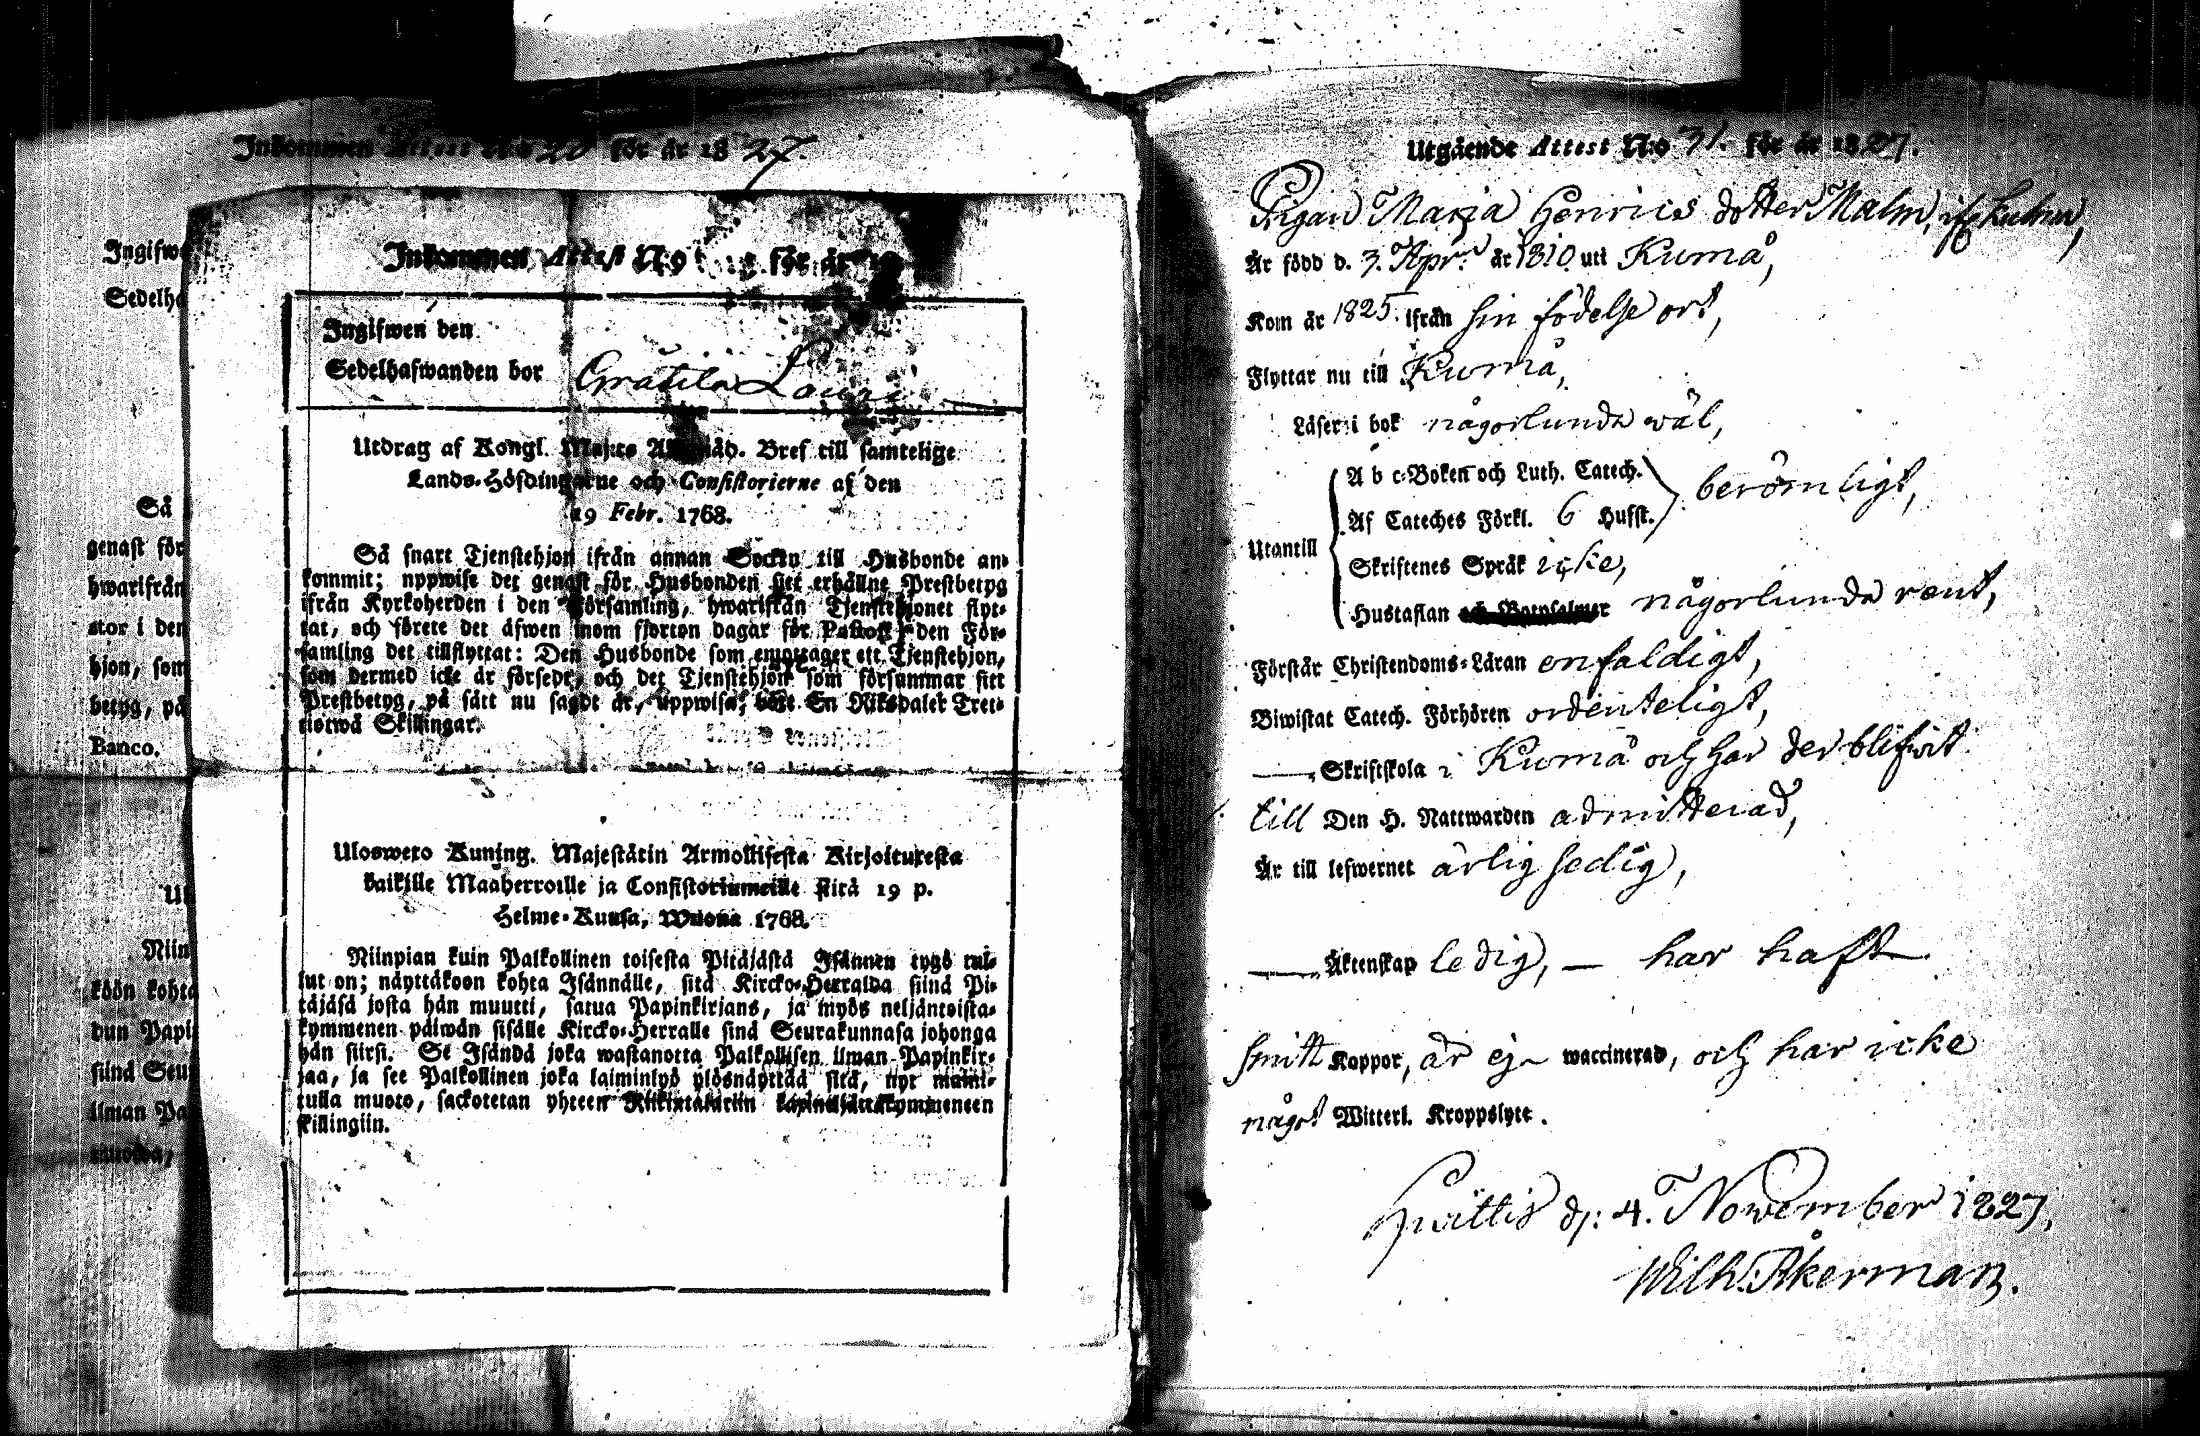 Inkommen Attest N:o 20 för år 1827.
Ingifw
Sedelha
Så
genast för
hwarifrån
stor i den
hjon, som
betyg, på
Banco.
Ul
Niin
köön kohta
dun Papi
siind Seu
ilman Pa
Inkommen Attest N:o för år
Ingifwen den
Sedelhafwanden bor Gråtila Lauri
Utdrag af Kongl. Maj:ts Allernåd. Bref till samtelige
Lands-Höfdingarne och Consistorierne af den
19 Febr. 1768.
Så snart Tjenstehjon ifrån annan Socken till Husbonde an-
kommit; uppwise det genast för Husbonden sitt erhållne Prestbetyg
ifrån Kyrkoherden i den Församling, hwarifrån Tjenstehjonet flyt-
tat, och förete det äfwen inom fjorton dagar för Pastor i den För-
samling det tillflyttat: Den Husbonde som emottager ett Tjenstehjon,
som dermed icke är försedt, och det Tjenstehjon som försummar sitt
Prestbetyg, på sätt nu sagdt är, uppwisa; böte En Riksdaler Tret-
tiotwå Skillingar.
Ulosweto Kuning. Majestätin Armollisesta Kirjoituxesta
kaikille Maaherroille ja Consistoriumeille siitä 19 p.
Helme-Kuusa, Wuona 1768.
Niinpian kuin Palkollinen toisesta Pitäjästä Isännen tygö tul-
lut on; näyttäkoon kohta Isännälle, sitä Kircko-Herralda siinä Pi-
täjäsä josta hän muutti, saatua Papinkirjans, ja myös neljäntoista-
kymmenen päiwän sisälle Kircko-Herralle siinä Seurakunnasa johonga
hän siirsi. Se Isändä joka wastanotta Palkollisen ilman Papinkir-
jaa, ja see Palkollinen joka laiminlyö ylösnäyttää sitä, nyt maini-
tulla muoto, sackotetan yhteen Riikintalariin kahdeneljättäkymmeneen
skillingiin.
Utgående Attest N:o 31. för år 1827.
Pigan Maria Henrics dotter Malm, ifr Kulma,
Är född d. 3. Apr: år 1810 uti Kumå,
Kom år 1825. ifrån sin födelse ort,
Flyttar nu till Kumå,
Läser i bok någorlunda wäl,
A b c-Boken och Luth. Catech.
berömligt,
Af Cateches Förkl. 6 Hufst.
Utantill
Skriftenes Språk icke,
Hustaflan och Botpsalmer någorlunda rent,
Förstår Christendoms-Läran enfaldigt,
Biwistat Catech. Förhören ordenteligt,
—, Skriftskola i Kumå och har der blifwit
till Den H. Nattwarden admitterad,
Är till lefwernet ärlig sedig,
—, Äktenskap ledig, — har haft
smitt Koppor, är ej waccinerad, och har icke
något Witterl. Kroppslyte.
Huittis d: 4. November 1827,
Wilh. Åkerman.